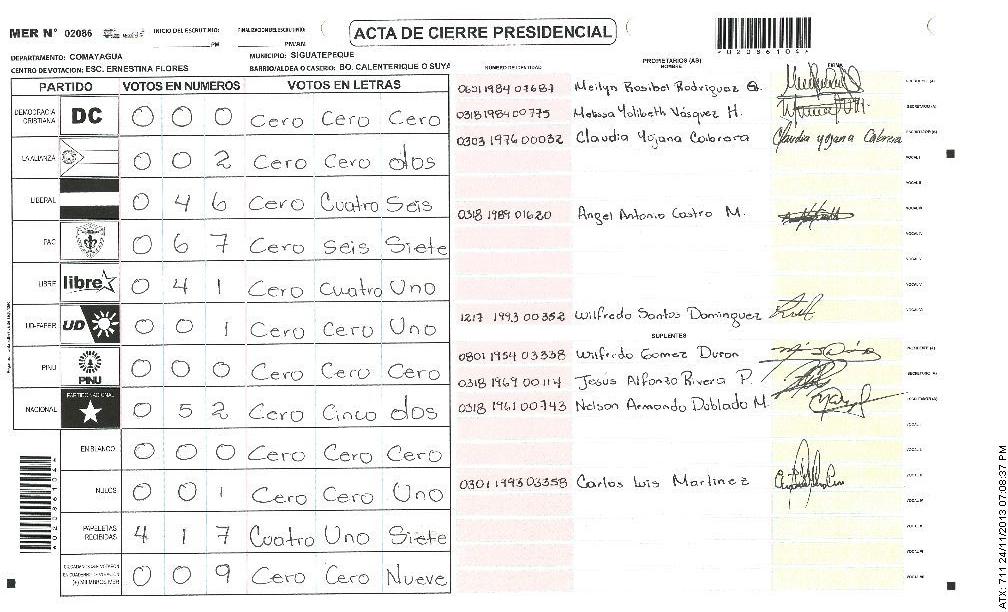 MER N° 02086 INICIO DEL ESCRUTINIO: PM FINALIZACION DEL ESCRUTINIO: PM/AM
ACTA DE CIERRE PRESIDENCIAL
U020861044
DEPARTAMENTO: COMAYAGUA MUNICIPIO: SIGUATEPEQUE
CENTRO DE VOTACION: ESC. ERNESTINA FLORES BARRIO/ALDEA O CASERIO: BO. CALENTERIQUE O SUYA
PARTIDO VOTOS EN NUMEROS VOTOS EN LETRAS
DEMOCRACIA CRISTIANA DC 0 0 0 Cero Cero Cero
LA ALIANZA 0 0 2 Cero Cero dos
LIBERAL 0 4 6 Cero Cuatro Seis
PAC 0 6 7 Cero Seis Siete
LIBRE libre 0 4 1 Cero Cuatro Uno
UD-FAPER UD 0 0 1 Cero Cero Uno
PINU PINU 0 0 0 Cero Cero Cero
NACIONAL PARTIDO NACIONAL 0 5 2 Cero Cinco dos
EN BLANCO 0 0 0 Cero Cero Cero
NULOS 0 0 1 Cero Cero Uno
PAPELETAS RECIBIDAS 4 1 7 Cuatro Uno Siete
0 0 9 Cero Cero Nueve
PROPIETARIOS (AS)
NUMERO DE IDENTIDAD NOMBRE FIRMA
0601 1984 01687 Meilyn Rosibel Rodriguez G. PRESIDENTE (A)
0318 1984 00775 Melissa Yolibeth Vásquez H. SECRETARIO (A)
0303 1976 00032 Claudia Yojana Cabrera Claudia Yojana Cabrera ESCRUTADOR (A)
VOCAL I
VOCAL II
0318 1989 01620 Angel Antonio Castro M. VOCAL III
VOCAL IV
VOCAL V
1217 1993 00352 Wilfredo Santos Dominguez VOCAL VI
SUPLENTES
0801 1954 03338 Wilfredo Gomez Duron PRESIDENTE (A)
0318 1969 00114 Jesus Alfonzo Rivera P. SECRETARIO (A)
0318 1961 00743 Nelson Armando Doblado M. ESCRUTADOR (A)
VOCAL I
VOCAL II
0301 1993 03358 Carlos Luis Martinez VOCAL III
VOCAL IV
VOCAL V
VOCAL VI
VOCAL VII
ATX: 711 24/11/2013 07:08:37 PM